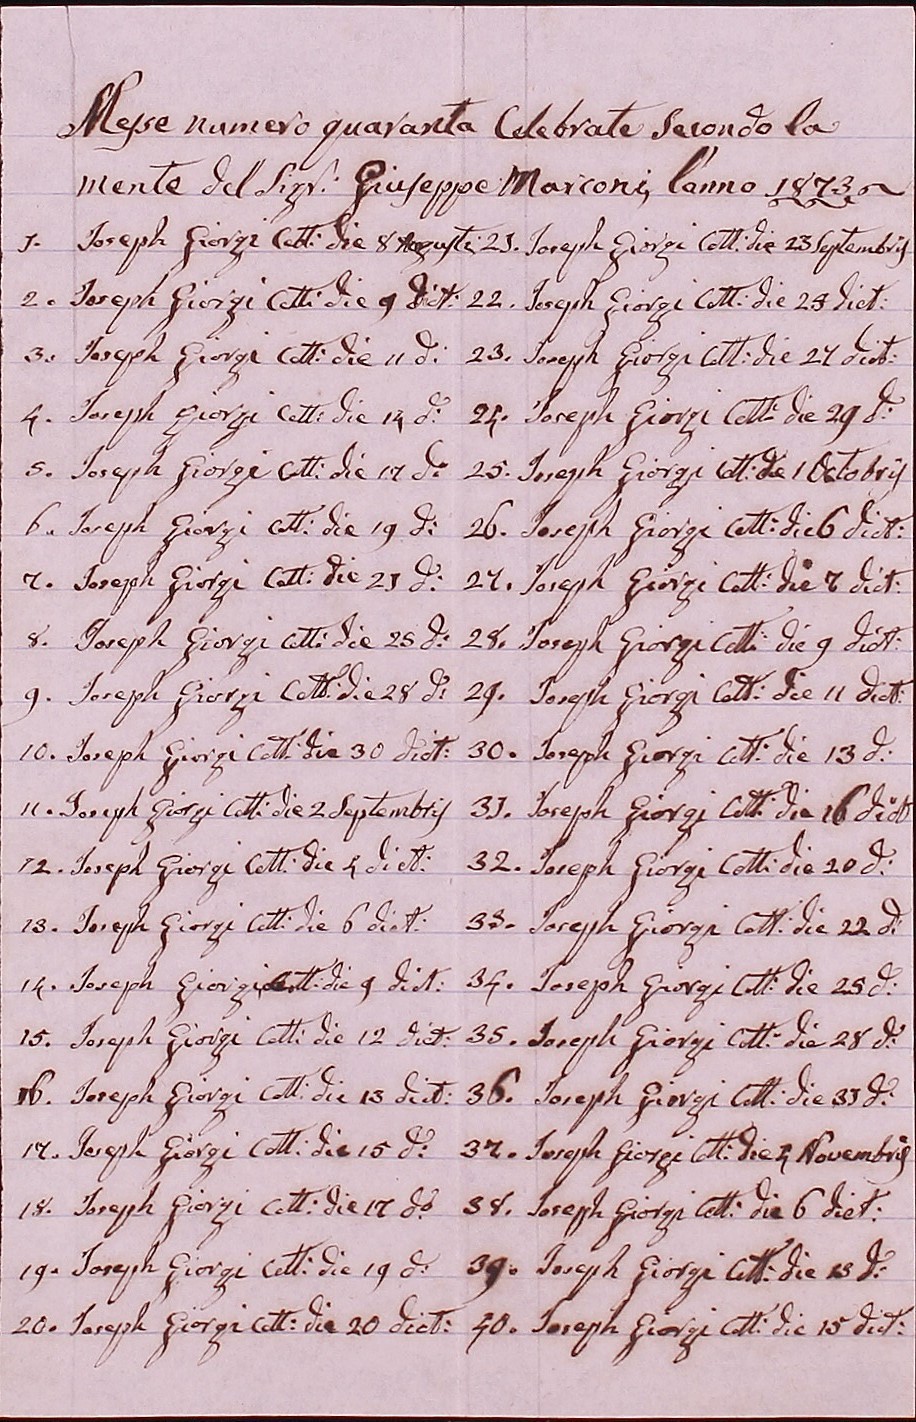 Messe numero quaranta Celebrate Secondo la
mente del Sigr: Giuseppe Marconi, l'anno 1873
1. Joseph Giorgi Cott: die 8 Augusti
2. Joseph Giorgi Cott: die 9 dict:
3. Joseph Giorgi Cott: die 11 d:
4. Joseph Giorgi Cott: die 14 d:
5. Joseph Giorgi Cott: die 17 d:
6. Joseph Giorgi Cott: die 19 d:
7. Joseph Giorgi Cott: die 21 d:
8. Joseph Giorgi Cott: die 25 d:
9. Joseph Giorgi Cott: die 28 d:
10. Joseph Giorgi Cott: die 30 dict:
11. Joseph Giorgi Cott: die 2 Septembris
12. Joseph Giorgi Cott: die 4 dict:
13. Joseph Giorgi Cott: die 6 dict:
14. Joseph Giorgi Cott: die 9 dict:
15. Joseph Giorgi Cott: die 12 dict:
16. Joseph Giorgi Cott: die 13 dict:
17. Joseph Giorgi Cott: die 15 d:
18. Joseph Giorgi Cott: die 17 d:
19. Joseph Giorgi Cott: die 19 d:
20. Joseph Giorgi Cott: die 20 dict:
21. Joseph Giorgi Cott: die 23 Septembris
22. Joseph Giorgi Cott: die 25 dict:
23. Joseph Giorgi Cott: die 27 dict:
24. Joseph Giorgi Cott: die 29 d:
25. Joseph Giorgi Cott: die 1 Octobris
26. Joseph Giorgi Cott: die 6 dict:
27. Joseph Giorgi Cott: die 7 dict:
28. Joseph Giorgi Cott: die 9 dict:
29. Joseph Giorgi Cott: die 11 dict:
30. Joseph Giorgi Cott: die 13 d:
31. Joseph Giorgi Cott: die 16 dict
32. Joseph Giorgi Cott: die 20 d:
33. Joseph Giorgi Cott: die 22 d:
34. Joseph Giorgi Cott: die 25 d:
35. Joseph Giorgi Cott: die 28 d:
36. Joseph Giorgi Cott: die 31 d:
37. Joseph Giorgi Cott: die 4 Novembris
38. Joseph Giorgi Cott: die 6 dict:
39. Joseph Giorgi Cott: die 13 d:
40. Joseph Giorgi Cott: die 15 dict: